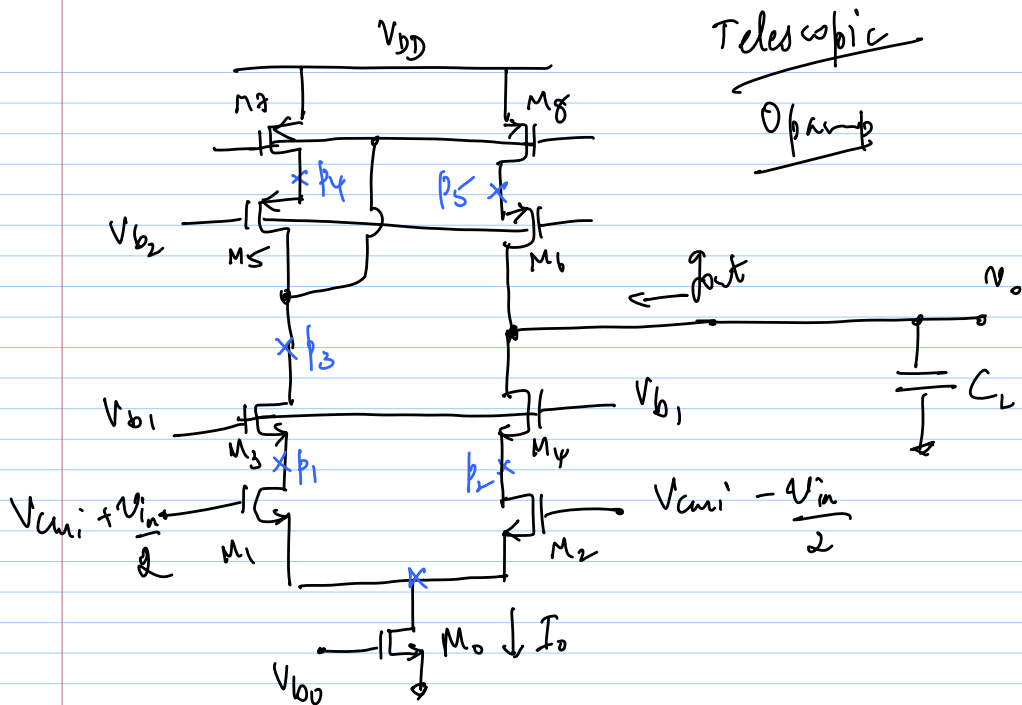 Telescopic
Opamp
VDD
M7
M8
p4
p5
Vb2
M5
M6
gout
vo
p3
Vb1
Vb1
CL
M3
M4
p1
p2
Vcmi + vin/2
Vcmi - vin/2
M1
M2
M0 ↓ I0
Vb0